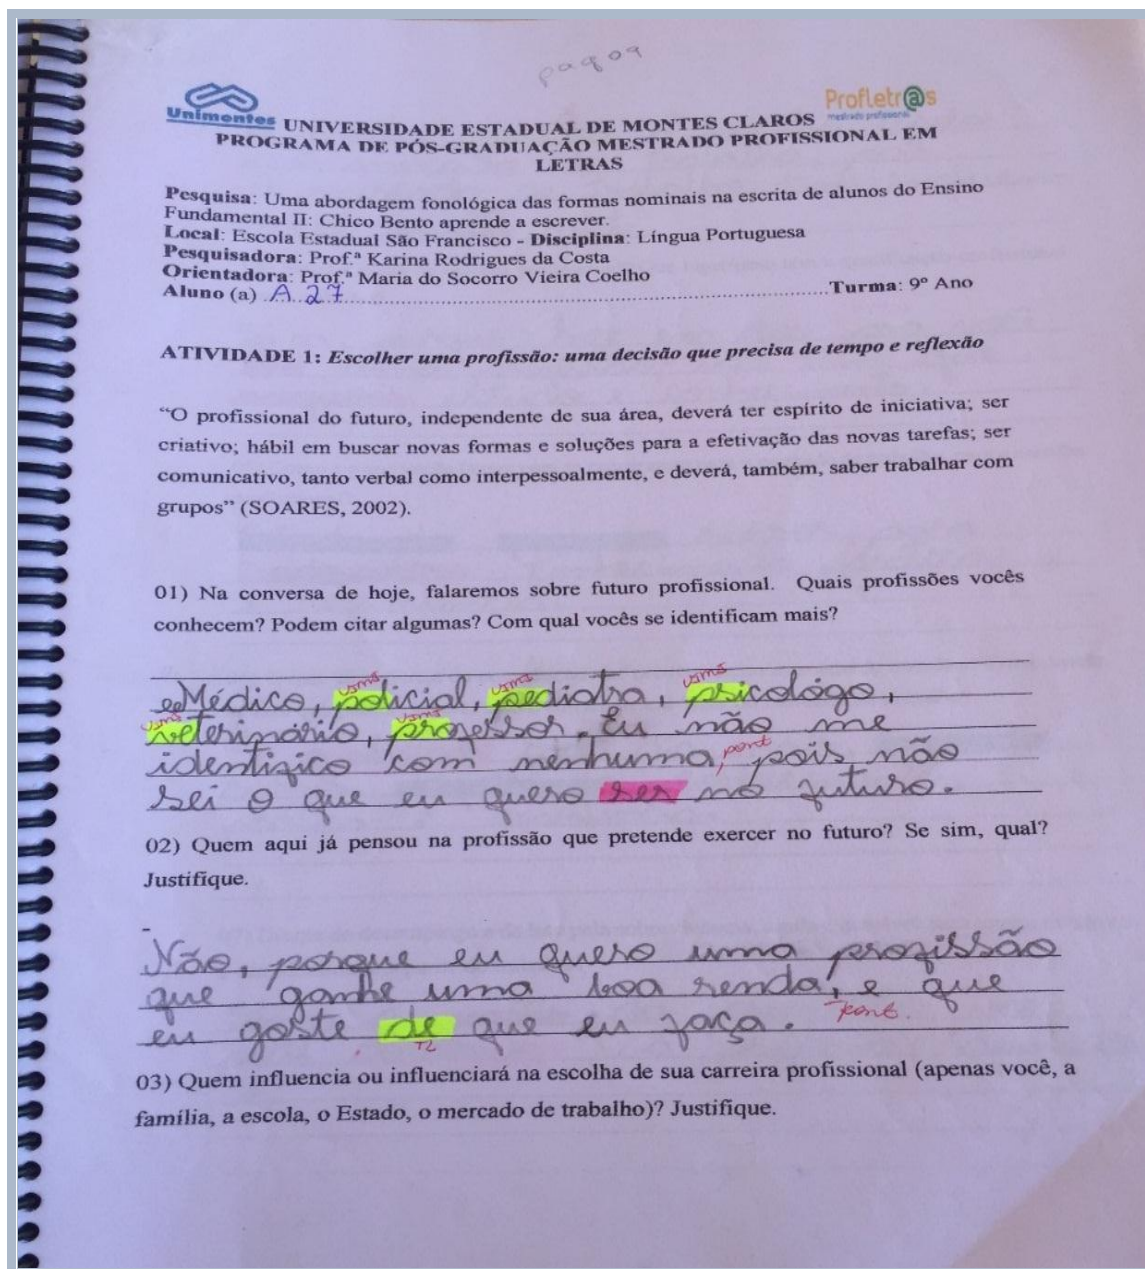 pag 09
Unimontes
Profletr@s
mestrado profissional
UNIVERSIDADE ESTADUAL DE MONTES CLAROS
PROGRAMA DE PÓS-GRADUAÇÃO MESTRADO PROFISSIONAL EM
LETRAS
Pesquisa: Uma abordagem fonológica das formas nominais na escrita de alunos do Ensino
Fundamental II: Chico Bento aprende a escrever.
Local: Escola Estadual São Francisco - Disciplina: Língua Portuguesa
Pesquisadora: Prof.ª Karina Rodrigues da Costa
Orientadora: Prof.ª Maria do Socorro Vieira Coelho
Aluno (a) A 27 Turma: 9º Ano
ATIVIDADE 1: Escolher uma profissão: uma decisão que precisa de tempo e reflexão
“O profissional do futuro, independente de sua área, deverá ter espírito de iniciativa; ser
criativo; hábil em buscar novas formas e soluções para a efetivação das novas tarefas; ser
comunicativo, tanto verbal como interpessoalmente, e deverá, também, saber trabalhar com
grupos” (SOARES, 2002).
01) Na conversa de hoje, falaremos sobre futuro profissional. Quais profissões vocês
conhecem? Podem citar algumas? Com qual vocês se identificam mais?
Médico, policial, pediatra, psicológo,
veterinário, professor. Eu não me
identifico com nenhuma, pois não
pont
sei o que eu quero ser no futuro.
02) Quem aqui já pensou na profissão que pretende exercer no futuro? Se sim, qual?
Justifique.
Não, porque eu quero uma profissão
que ganhe uma boa renda, e que
eu goste de que eu faça. pont.
03) Quem influencia ou influenciará na escolha de sua carreira profissional (apenas você, a
família, a escola, o Estado, o mercado de trabalho)? Justifique.